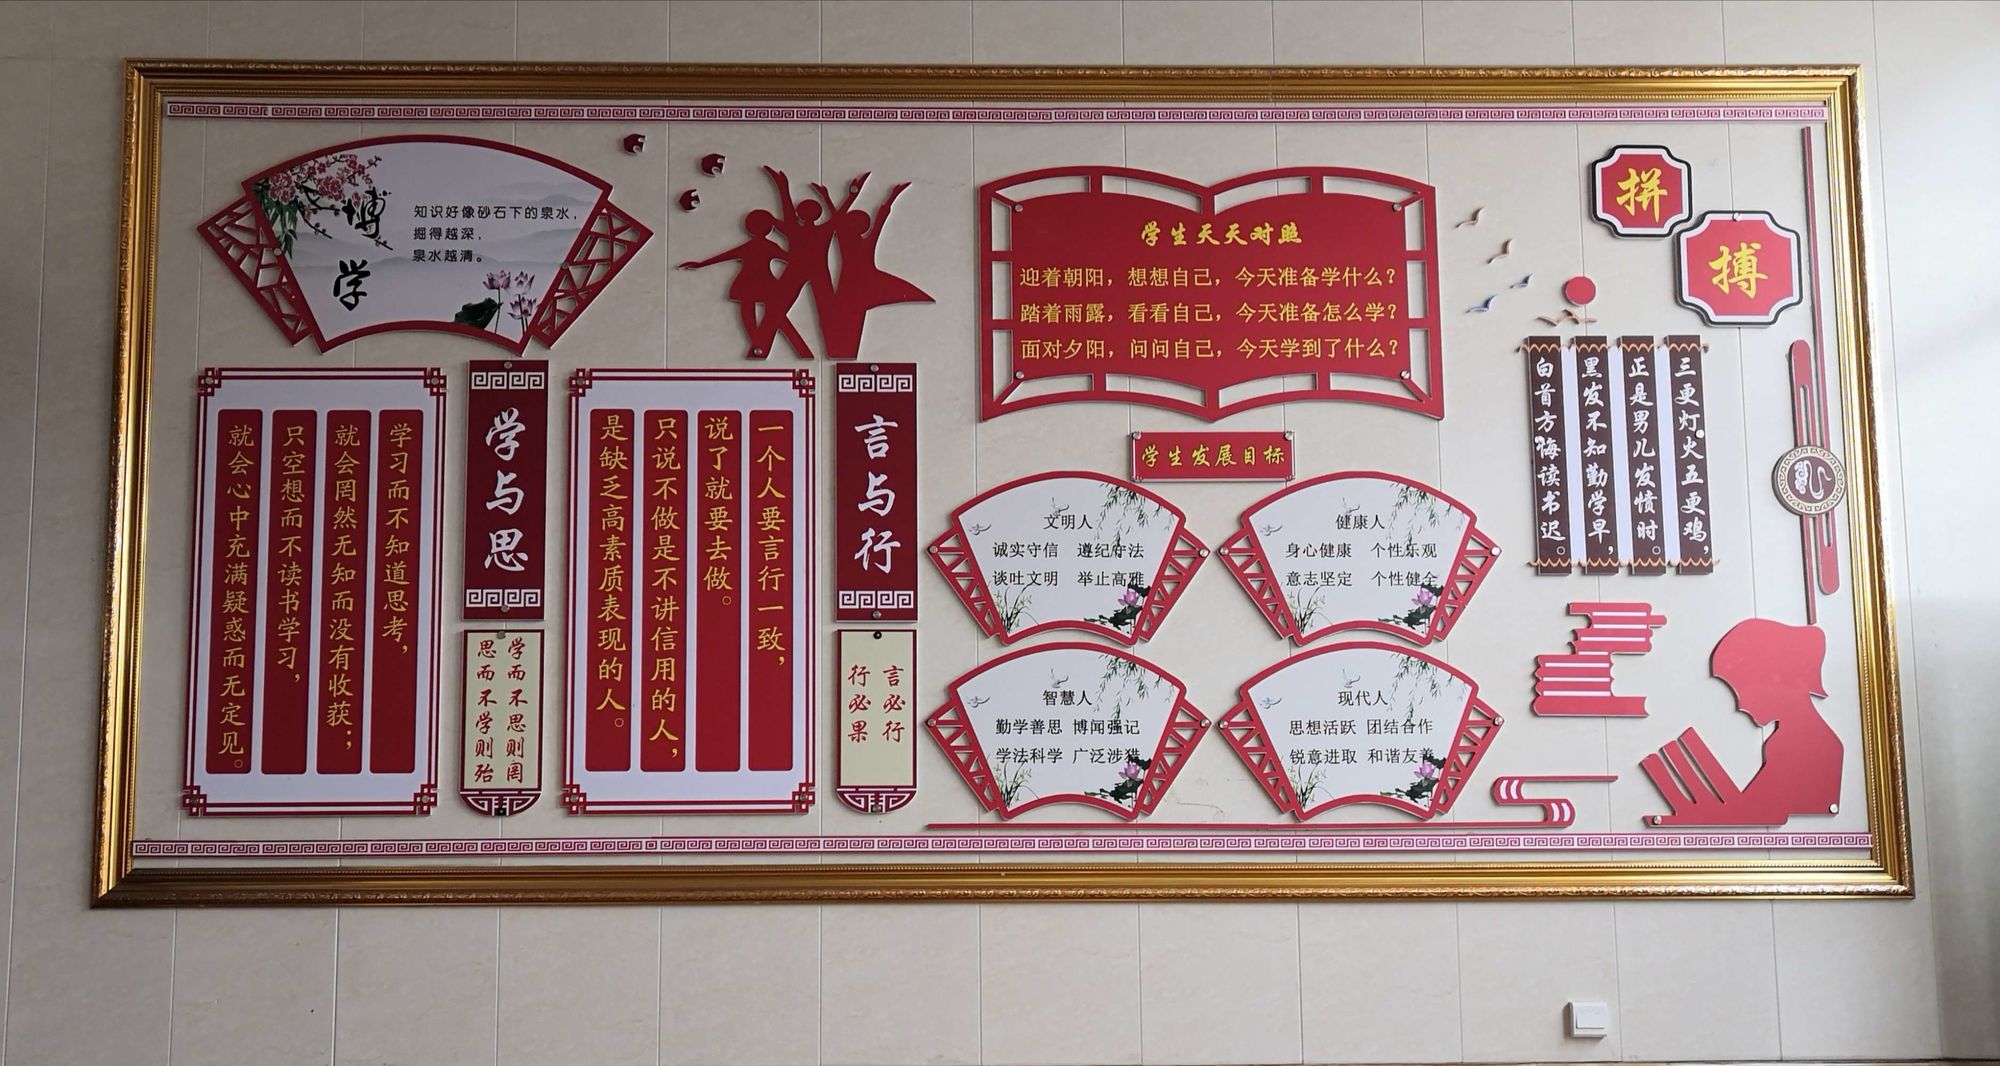 博学
知识好像砂石下的泉水，
掘得越深，
泉水越清。
学与思
学习而不知道思考，
就会罔然无知而没有收获；
只空想而不读书学习，
就会心中充满疑惑而无定见。
学而不思则罔
思而不学则殆
言与行
一个人要言行一致，
说了就要去做。
只说不做是不讲信用的人，
是缺乏高素质表现的人。
言必行
行必果
学生天天对照
迎着朝阳，想想自己，今天准备学什么？
踏着雨露，看看自己，今天准备怎么学？
面对夕阳，问问自己，今天学到了什么？
学生发展目标
文明人
诚实守信 遵纪守法
谈吐文明 举止高雅
健康人
身心健康 个性乐观
意志坚定 个性健全
智慧人
勤学善思 博闻强记
学法科学 广泛涉猎
现代人
思想活跃 团结合作
锐意进取 和谐友善
拼
搏
三更灯火五更鸡，
正是男儿发愤时。
黑发不知勤学早，
白首方悔读书迟。